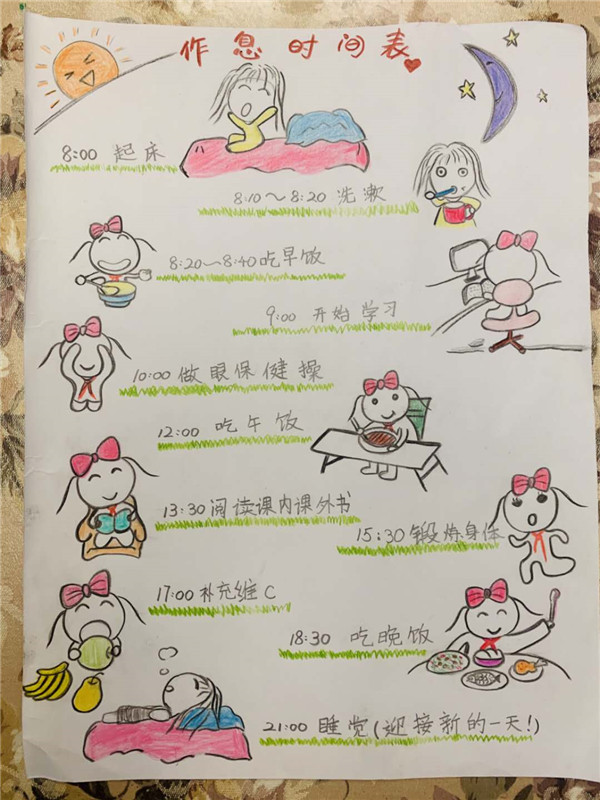 作息时间表
8:00 起床
8:10～8:20 洗漱
8:20～8:40吃早饭
9:00 开始学习
10:00 做眼保健操
12:00 吃午饭
13:30 阅读课内课外书
15:30 锻炼身体
17:00 补充维C
18:30 吃晚饭
21:00 睡觉(迎接新的一天!)